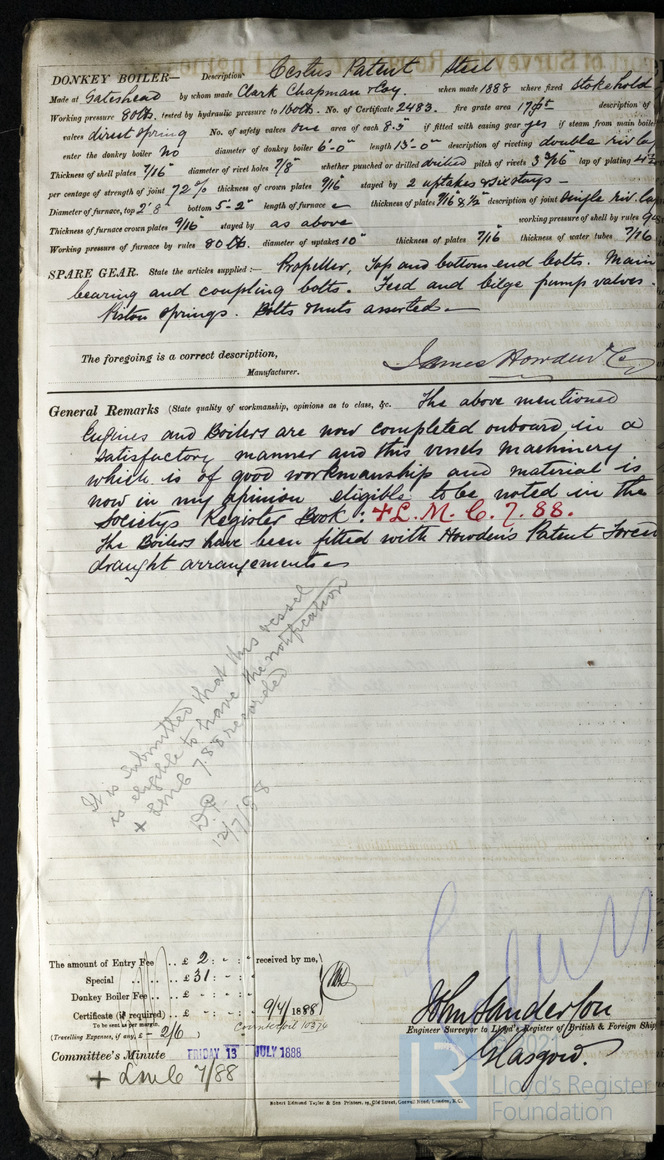 DONKEY BOILER— Description Cestus Patent Steel
Made at Gateshead by whom made Clark Chapman & Coy. when made 1888 where fixed Stokehold
Working pressure 80lb. tested by hydraulic pressure to 160lb. No. of Certificate 2483. fire grate area 17 description of
valves direct spring No. of safety valves one area of each 8.3" if fitted with easing gear yes if steam from main boiler
enter the donkey boiler No diameter of donkey boiler 6'-0" length 13'-0" description of riveting double riv lap
Thickness of shell plates 7/16" diameter of rivet holes 7/8" whether punched or drilled drilled pitch of rivets 3 lap of plating
per centage of strength of joint 72% thickness of crown plates 9/16 stayed by 2 uptakes & six stays —
Diameter of furnace, top 2'8" bottom 5'-2" length of furnace thickness of plates description of joint Single riv. lap
Thickness of furnace crown plates 9/16" stayed by as above working pressure of shell by rules
Working pressure of furnace by rules 80 lb. diameter of uptakes 10" thickness of plates 7/16 thickness of water tubes 7/16
SPARE GEAR. State the articles supplied:— Propeller, Top and bottom end bolts. Main
bearing and coupling bolts. Feed and bilge pump valves.
Piston springs. Bolts & nuts assorted —
The foregoing is a correct description,
Manufacturer. James Howden & Co
General Remarks (State quality of workmanship, opinions as to class, &c. The above mentioned
Engines and Boilers are now completed onboard in a
satisfactory manner and this vessels machinery
which is of good workmanship and material is
now in my opinion eligible to be noted in the
Societys Register Book. + L. M. C. 7. 88.
The Boilers have been fitted with Howdens Patent Forced
draught arrangements
It is submitted that this vessel
is eligible to have the notification
+ LMC 7.88 recorded
12/7/88
The amount of Entry Fee .. £ 2 : - : - received by me,
Special .. £ 31 : - : -
Donkey Boiler Fee .. £ - : - : -
Certificate (if required) .. £ - : - : - 9/7/1888
To be sent as per margin. Counterfoil 10374
(Travelling Expenses, if any, £ — 2/6 )
John Sanderson
Engineer Surveyor to Lloyd's Register of British & Foreign Ship
Glasgow.
Committee's Minute FRIDAY 13 JULY 1888
+ LMC 7/88
Robert Edmund Taylor & Son Printers, 19, Old Street, Goswell Road, London, E.C.
© 2021
LR
Lloyd's Register
Foundation